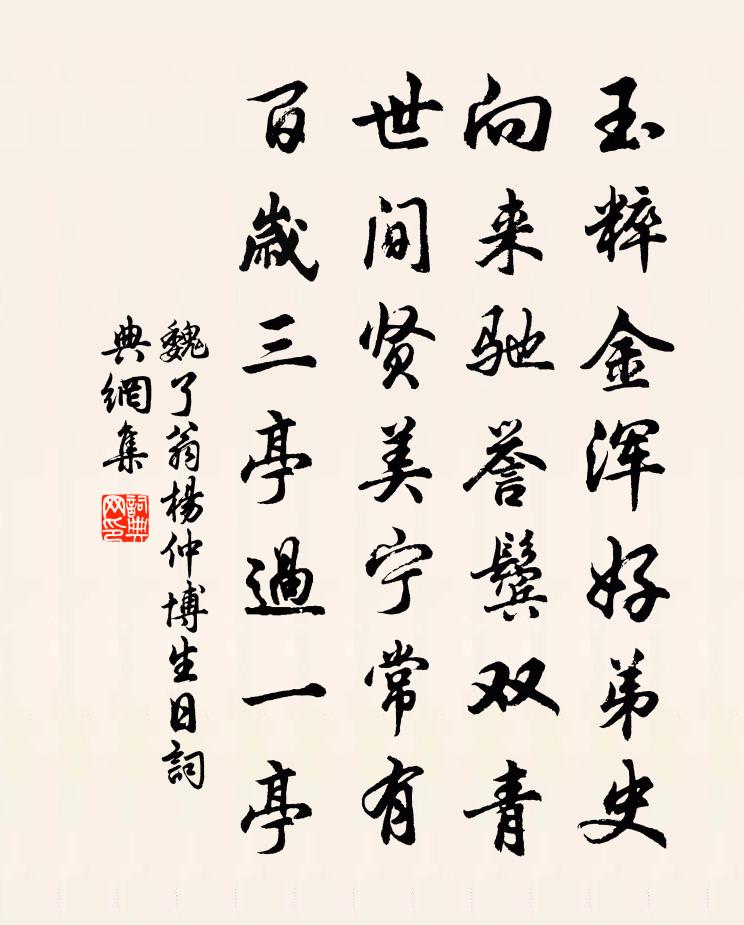 玉粹金浑好弟史
向来驰誉鬓双青
世间贤美宁常有
百歲三亭過一亭
魏了翁楊仲博生日詞
典網集
詞典
网印